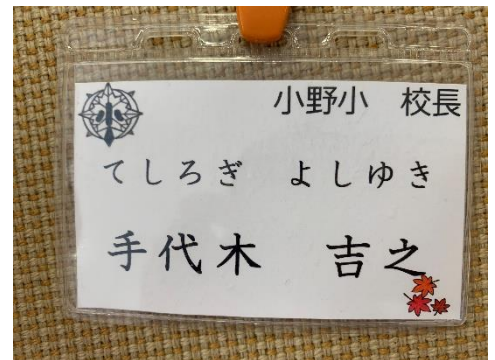 小野小　校長
てしろぎ　よしゆき
手代木　吉之